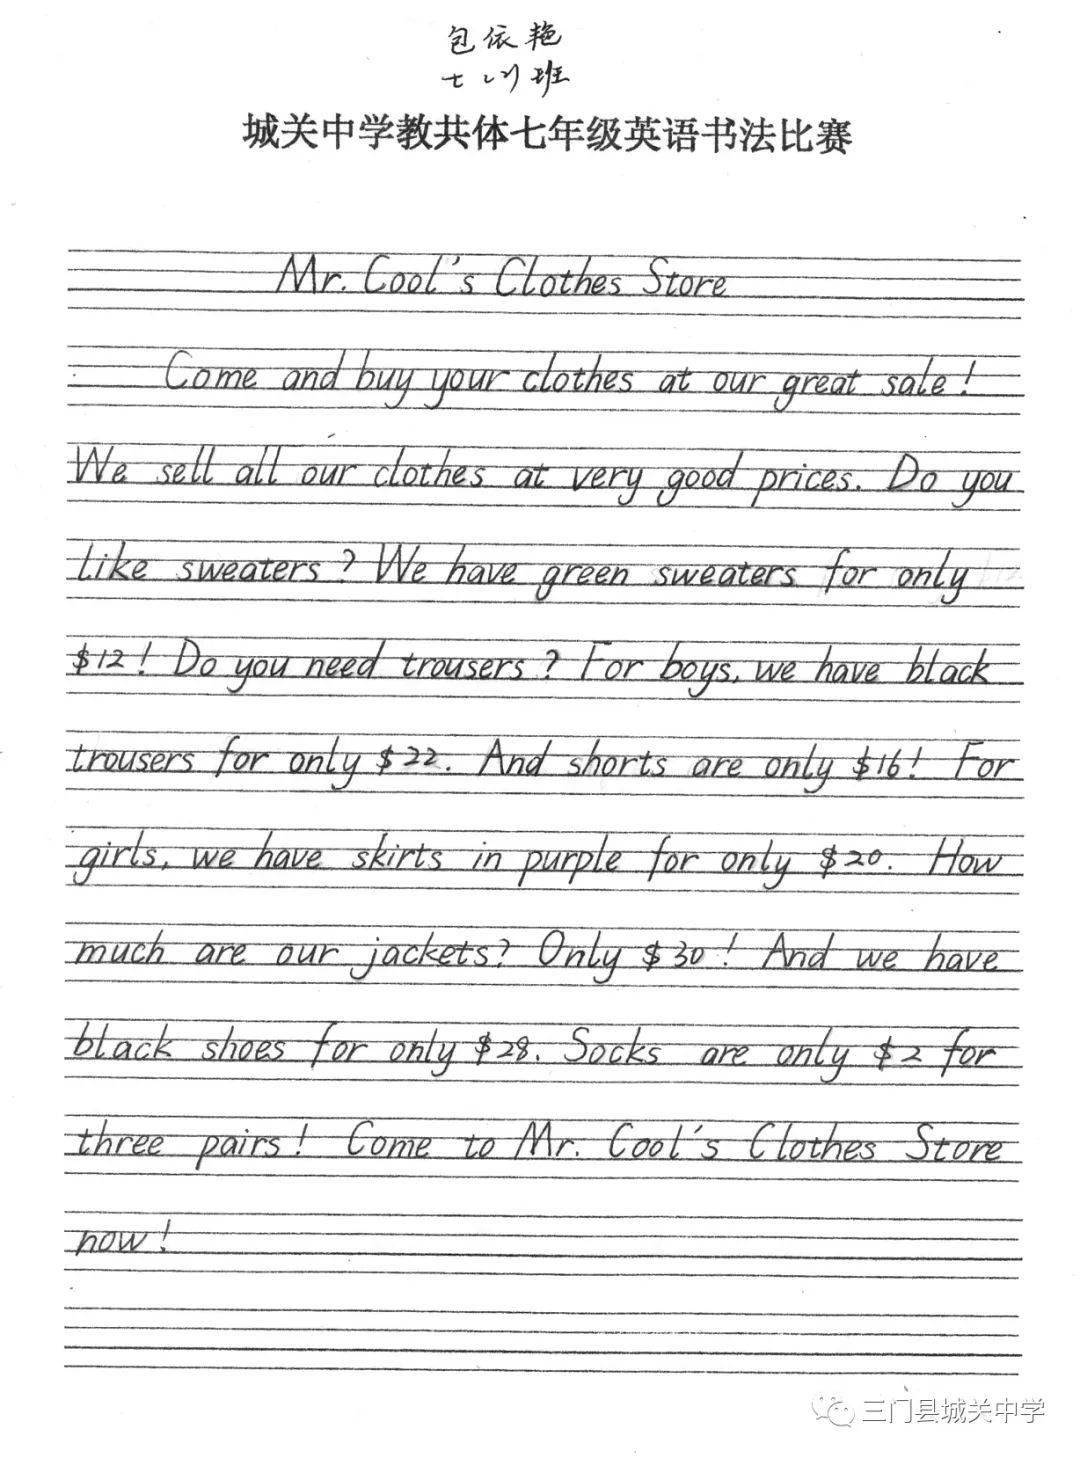 包依艳
七(1)班
城关中学教共体七年级英语书法比赛
Mr. Cool's Clothes Store
Come and buy your clothes at our great sale!
We sell all our clothes at very good prices. Do you
like sweaters? We have green sweaters for only
$12! Do you need trousers? For boys, we have black
trousers for only $22. And shorts are only $16! For
girls, we have skirts in purple for only $20. How
much are our jackets? Only $30! And we have
black shoes for only $28. Socks are only $2 for
three pairs! Come to Mr. Cool's Clothes Store
now!
三门县城关中学